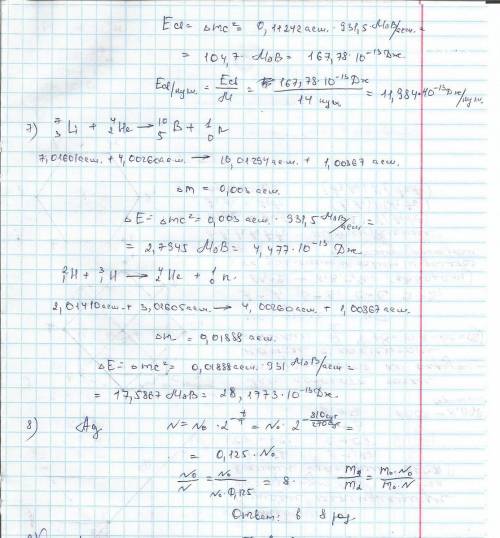 Eсв = Δmc² = 0,11242 а.е.м. · 931,5 МэВ/а.е.м. =
= 104,7 · МэВ = 167,78 · 10⁻¹³ Дж
Eсв/нук. = Eсв/M = 167,78 · 10⁻¹³ Дж / 14 нук = 11,984 · 10⁻¹³ Дж/нук.
7) ⁷₃Li + ⁴₂He → ¹⁰₅B + ¹₀n
7,01601 а.е.м. + 4,00260 а.е.м. → 10,01294 а.е.м. + 1,00867 а.е.м.
Δm = 0,003 а.е.м.
ΔE = Δmc² = 0,003 а.е.м. · 931,5 МэВ/а.е.м. =
= 2,7945 МэВ = 4,477 · 10⁻¹³ Дж
²₁H + ³₁H → ⁴₂He + ¹₀n.
2,01410 а.е.м. + 3,01605 а.е.м. → 4,00260 а.е.м. + 1,00867 а.е.м.
Δm = 0,01888 а.е.м.
ΔE = Δmc² = 0,01888 а.е.м. · 931 МэВ/а.е.м. =
= 17,5867 МэВ = 28,1773 · 10⁻¹³ Дж.
8) Ag N = N₀ · 2^(-t/T) = N₀ · 2^(-810сут/270сут) =
= 0,125 · N₀
N₀/N = N₀/N₀·0,125 = 8. = m₀·N₀/m₀·N
Ответ: в 8 раз